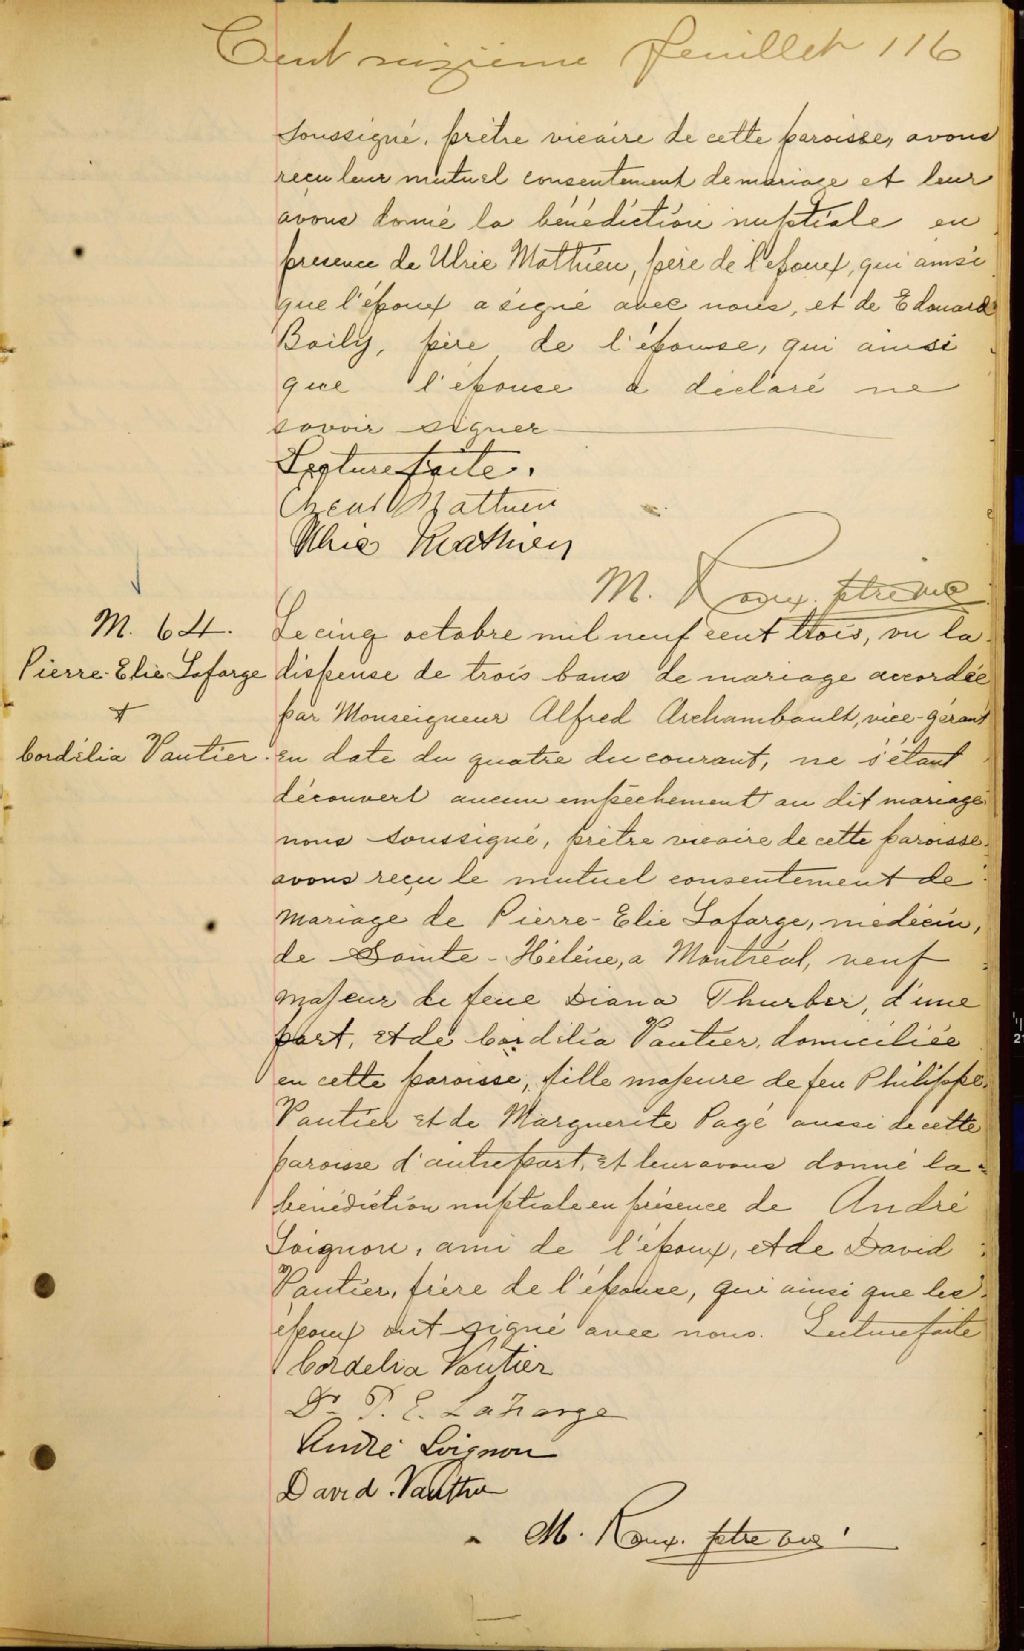 Cent seizième feuillet 116
soussigné, prêtre vicaire de cette paroisse, avons
reçu leur mutuel consentement de mariage et leur
avons donné la bénédiction nuptiale en
presence de Ulric Mathieu, père de l'époux, qui ainsi
que l'époux a signé avec nous, et de Edouard
Boily, père de l'épouse, qui ainsi
que l'épouse a déclaré ne
savoir signer
Lecture faite.
Mathieu
Ulric Mathieu
M. Roux. ptre vic
M. 64.
Pierre-Elie Lafarge
+
Cordélia Vautier.
Le cinq octobre mil neuf cent trois, vu la
dispense de trois bans de mariage accordée
par Monseigneur Alfred Archambault, vice-gérant
en date du quatre du courant, ne s'étant
découvert aucun empêchement au dit mariage
nous soussigné, prêtre vicaire de cette paroisse
avons reçu le mutuel consentement de
mariage de Pierre-Elie Lafarge, médecin,
de Sainte-Hélène, a Montréal, veuf
majeur de feue Diana Thurber, d'une
part, et de Cordélia Vautier, domiciliée
en cette paroisse, fille majeure de feu Philippe
Vautier et de Marguerite Pagé aussi de cette
paroisse d'autre part, et leur avons donné la
bénédiction nuptiale en présence de André
Loignon, ami de l'époux, et de David
Vautier, frère de l'épouse, qui ainsi que les
époux ont signé avec nous. Lecture faite
Cordelia Vautier
Dr P. E. Lafarge
André Loignon
David Vauthier
M. Roux. ptre vic